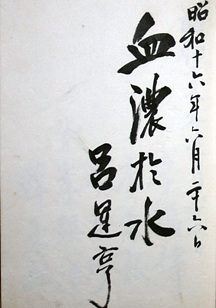 昭和十六年六月二十六日
血濃於水
呂運亨